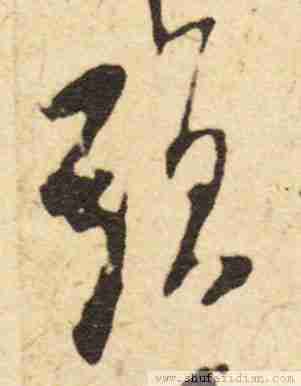 預
www.shufazidian.com